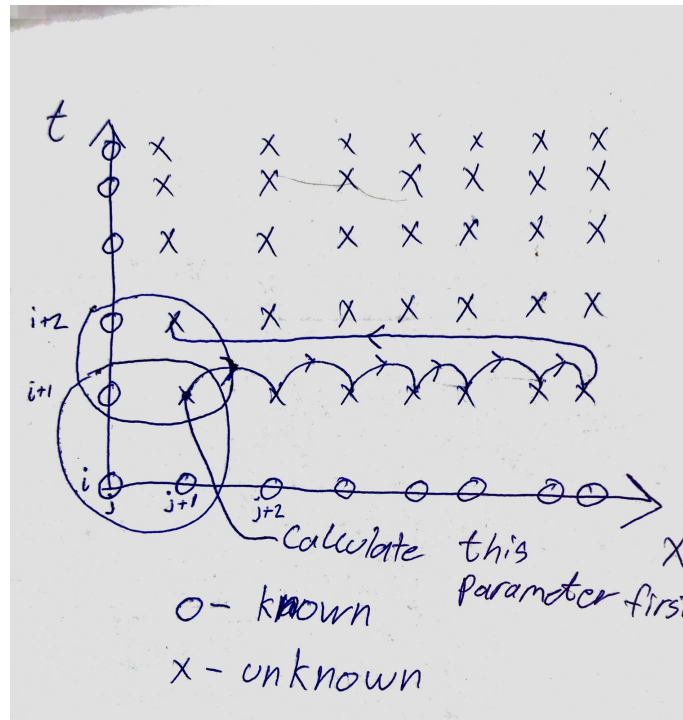 t
i+2
i+1
i
j
j+1
j+2
Calculate this
parameter first
x
o - known
x - unknown